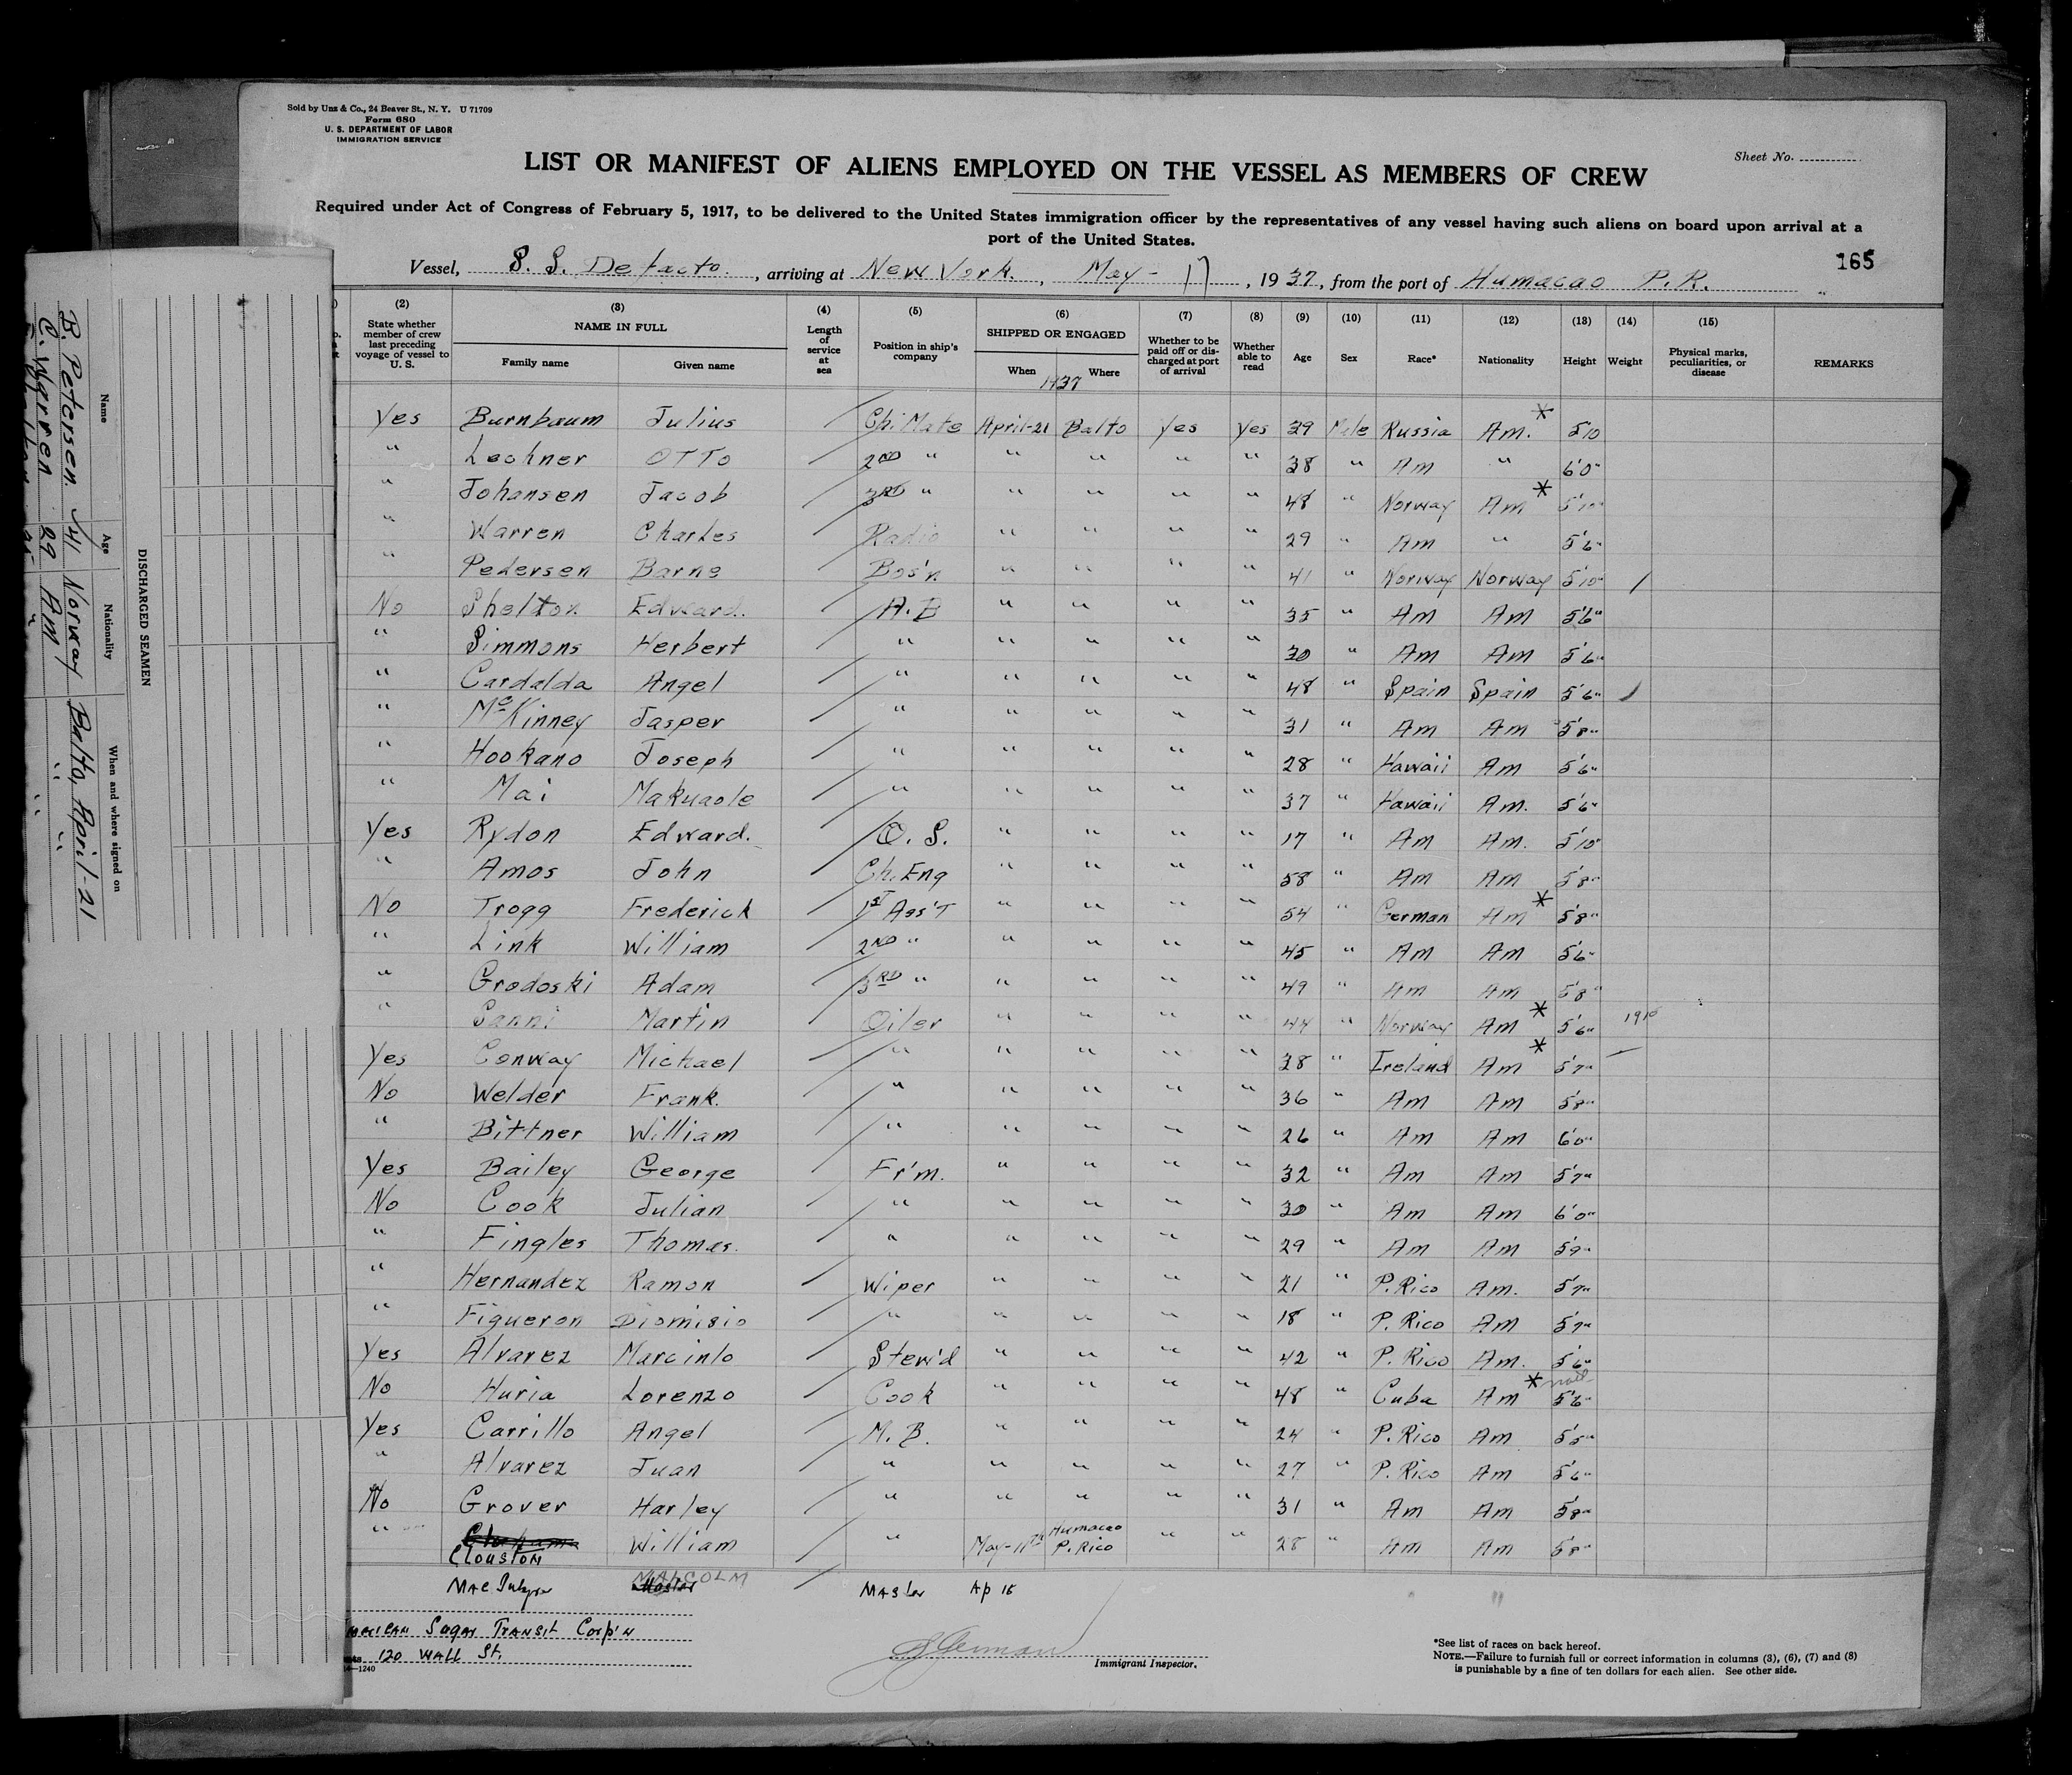 Sold by Unz & Co., 24 Beaver St., N. Y. U 71709
Form 680
U. S. DEPARTMENT OF LABOR
IMMIGRATION SERVICE
Sheet No.
LIST OR MANIFEST OF ALIENS EMPLOYED ON THE VESSEL AS MEMBERS OF CREW
Required under Act of Congress of February 5, 1917, to be delivered to the United States immigration officer by the representatives of any vessel having such aliens on board upon arrival at a
port of the United States.
165
Vessel, S. S. Defacto, arriving at New York, May - 17, 1937, from the port of Humacao P. R.
(2) State whether member of crew last preceding voyage of vessel to U. S.
(3) NAME IN FULL Family name Given name
(4) Length of service at sea
(5) Position in ship's company
(6) SHIPPED OR ENGAGED When 1937 Where
(7) Whether to be paid off or discharged at port of arrival
(8) Whether able to read
(9) Age
(10) Sex
(11) Race*
(12) Nationality
(13) Height
(14) Weight
(15) Physical marks, peculiarities, or disease
REMARKS
Yes Burnbaum Julius Ch. Mate April-21 Balto Yes Yes 39 Male Russia Am. * 5'10
" Lechner OTTO 2ND " " " " " 38 " Am " 6'0"
" Johansen Jacob 3RD " " " " " 48 " Norway Am * 5'10"
" Warren Charles Radio " " " " 29 " Am " 5'6"
" Pedersen Barne Bos'n " " " " 41 " Norway Norway 5'10" /
No Shelton Edward. A.B " " " " 35 " Am Am 5'6"
" Simmons Herbert " " " " " 30 " Am Am 5'6"
" Cardalda Angel " " " " " 48 " Spain Spain 5'6" /
" McKinney Jasper " " " " " 31 " Am Am 5'8"
" Hookano Joseph " " " " " 28 " Hawaii Am 5'6"
" Mai Makuaole " " " " " 37 " Hawaii Am. 5'6"
Yes Rydon Edward. O. S. " " " " 17 " Am Am. 5'10"
" Amos John Ch. Eng " " " " 58 " Am Am 5'8"
No Trogg Frederick 1ST Ass'T " " " " 54 " German Am * 5'8"
" Link William 2ND " " " " " 45 " Am Am 5'6"
" Grodoski Adam 3RD " " " " " 49 " Am Am 5'8"
" Martin Oiler " " " " 44 " Norway Am * 5'6"
Yes Conway Michael " " " " " 38 " Ireland Am * 5'7"
No Welder Frank. " " " " " 36 " Am Am 5'8"
" Bittner William " " " " " 26 " Am Am 6'0"
Yes Bailey George Fr'm. " " " " 32 " Am Am 5'7"
No Cook Julian " " " " " 30 " Am Am 6'0"
" Fingles Thomas. " " " " " 29 " Am Am 5'9"
" Hernandez Ramon Wiper " " " " 21 " P. Rico Am. 5'7"
" Figueron Diomisio " " " " " 18 " P. Rico Am 5'7"
Yes Alvarez Marcinlo Stew'd " " " " 42 " P. Rico Am. 5'6"
No Huria Lorenzo Cook " " " " 48 " Cuba Am * 5'6"
Yes Carrillo Angel M. B. " " " " 24 " P. Rico Am 5'5"
" Alvarez Juan " " " " " 27 " P. Rico Am 5'6"
No Grover Harley " " " " " 31 " Am Am 5'8"
" Clouston William " May-11th Humacao P. Rico " " 28 " Am Am 5'8"
MALCOLM Master Ap 15
Sugar Transit Corp'n
120 Wall St.
14—1240
Immigrant Inspector.
*See list of races on back hereof.
NOTE.—Failure to furnish full or correct information in columns (3), (6), (7) and (8)
is punishable by a fine of ten dollars for each alien. See other side.
DISCHARGED SEAMEN
Name Age Nationality When and where signed on
B. Petersen 41 Norway Balto, April-21
C. Warren 29 Am " "